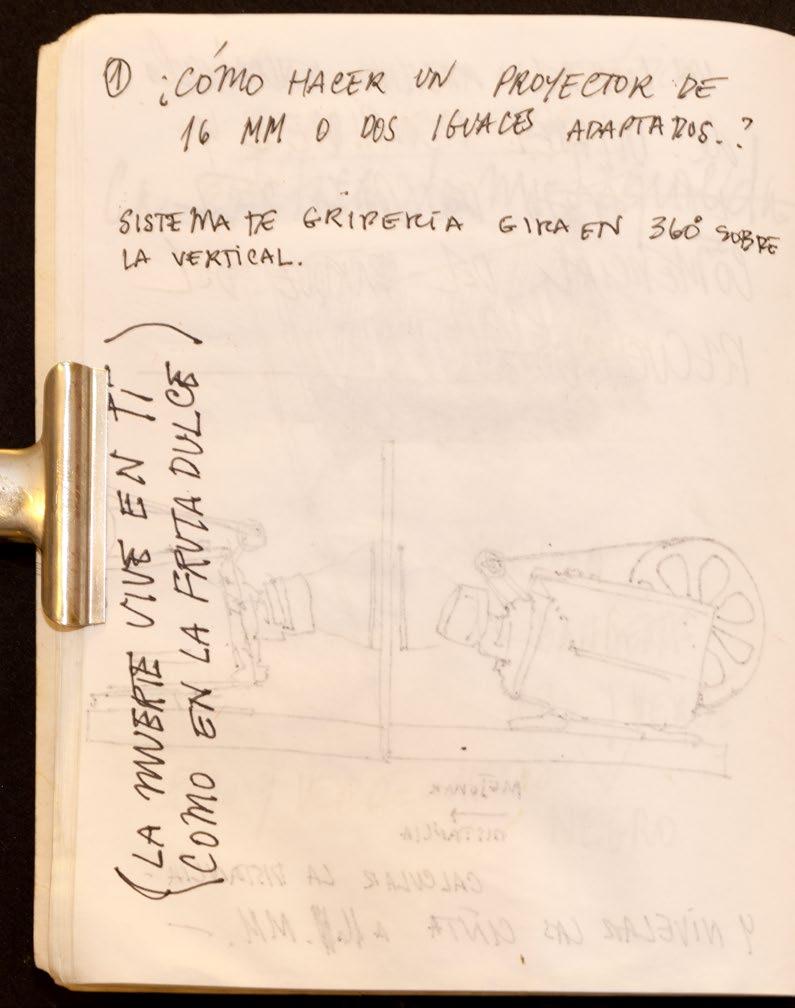 ① ¿CÓMO HACER UN PROYECTOR DE
16 MM O DOS IGUALES ADAPTADOS.?
SISTEMA DE GRIPERÍA GIRA EN 360° SOBRE
LA VERTICAL.
(LA MUERTE VIVE EN TI
COMO EN LA FRUTA DULCE)
CALCULAR LA DISTANCIA
Y NIVELAR LAS CINTA a MM.